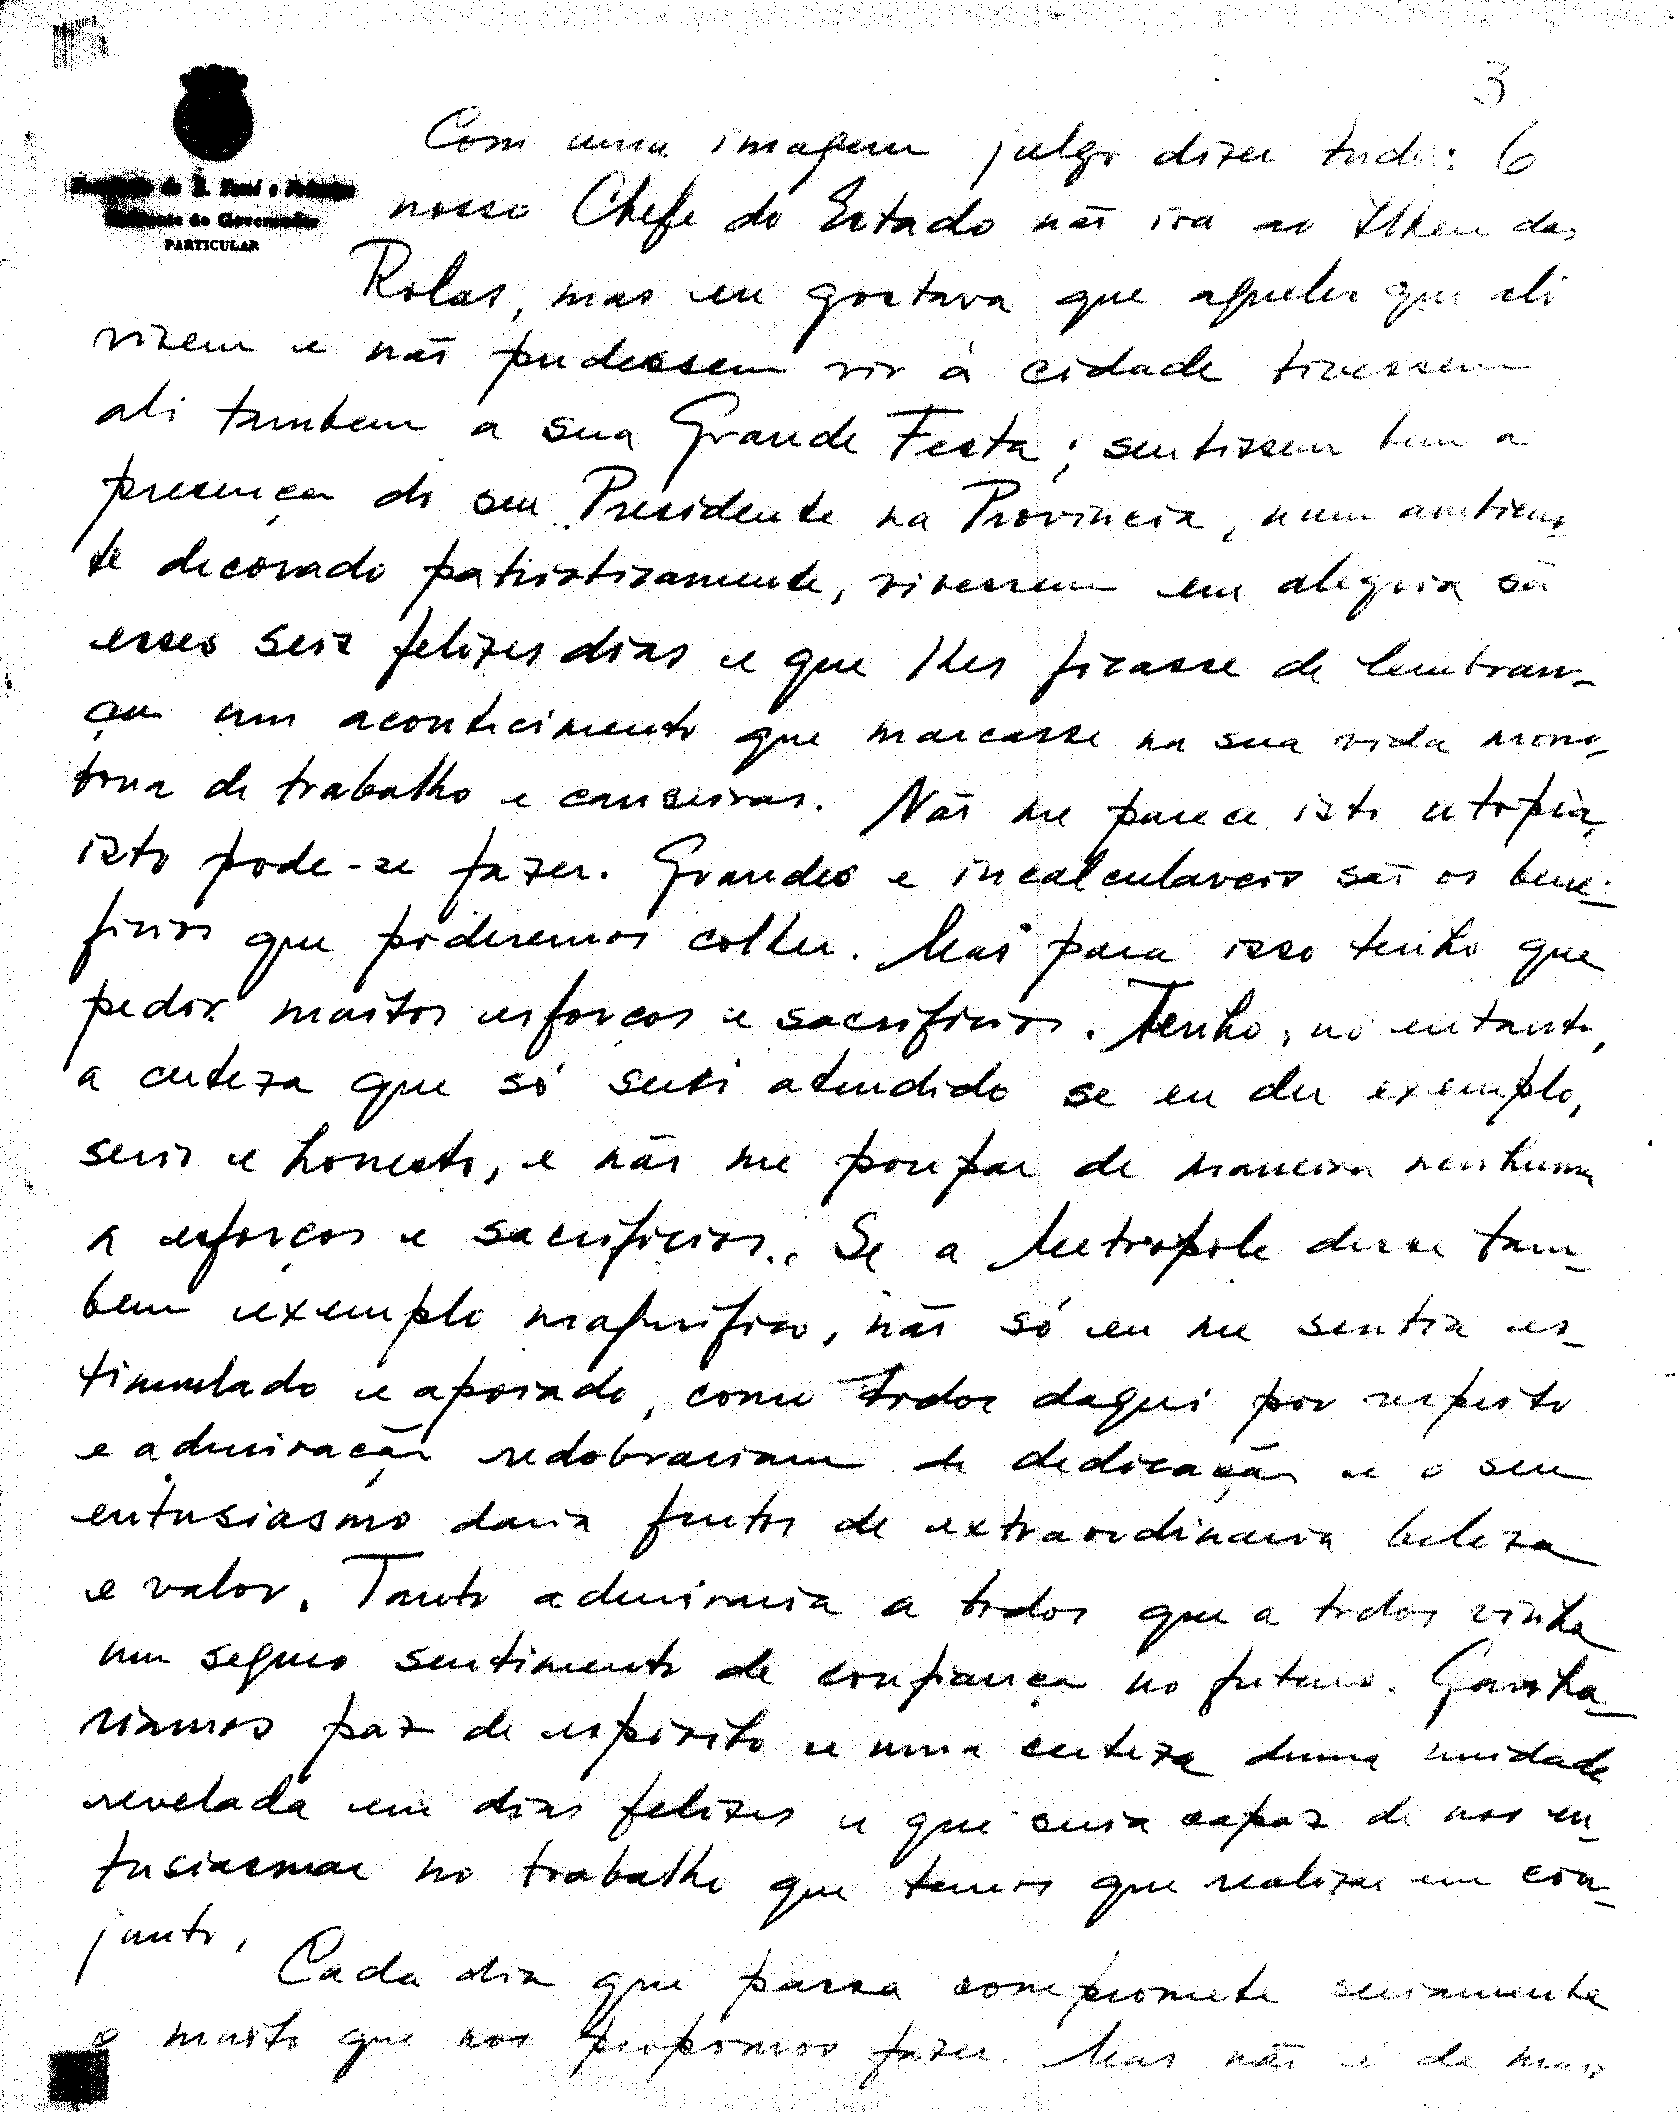 3
Província de S. Tomé e Príncipe
Gabinete do Governador
PARTICULAR
Com uma imagem julgo dizer tudo: O
nosso Chefe do Estado não irá ao Ilheu das
Rolas, mas eu gostava que aqueles que ali
vivem e não pudessem vir à cidade tivessem
ali tambem a sua Grande Festa; sentissem bem a
presença do seu Presidente na Província, num ambien-
te decorado patrioticamente, vivessem em alegria sã
esses seis felizes dias e que lhes ficasse de lembran-
ça um acontecimento que marcasse na sua vida mono-
tona de trabalho e canseiras. Não me parece isto utopia,
isto pode-se fazer. Grandes e incalculaveis são os bene-
fícios que poderemos colher. Mas para isso tenho que
pedir muitos esforços e sacrificios. Tenho, no entanto,
a certeza que só serei atendido se eu der exemplo,
serio e honesto, e não me poupar de maneira nenhuma
a esforços e sacrificios. Se a Metropole desse tam-
bem exemplo magnifico, não só eu me sentia es-
timulado e apoiado, como todos daqui por respeito
e admiração redobrariam de dedicação e o seu
entusiasmo daria frutos de extraordinaria beleza
e valor. Tanto admiraria a todos que a todos vinha
um seguro sentimento de confiança no futuro. Ganha-
riamos paz de espirito e uma certeza duma unidade
revelada em dias felizes e que seria capaz de nos en-
tusiasmar no trabalho que temos que realizar em con-
junto.
Cada dia que passa compromete seriamente
o muito que nos propomos fazer. Mas não é de mais